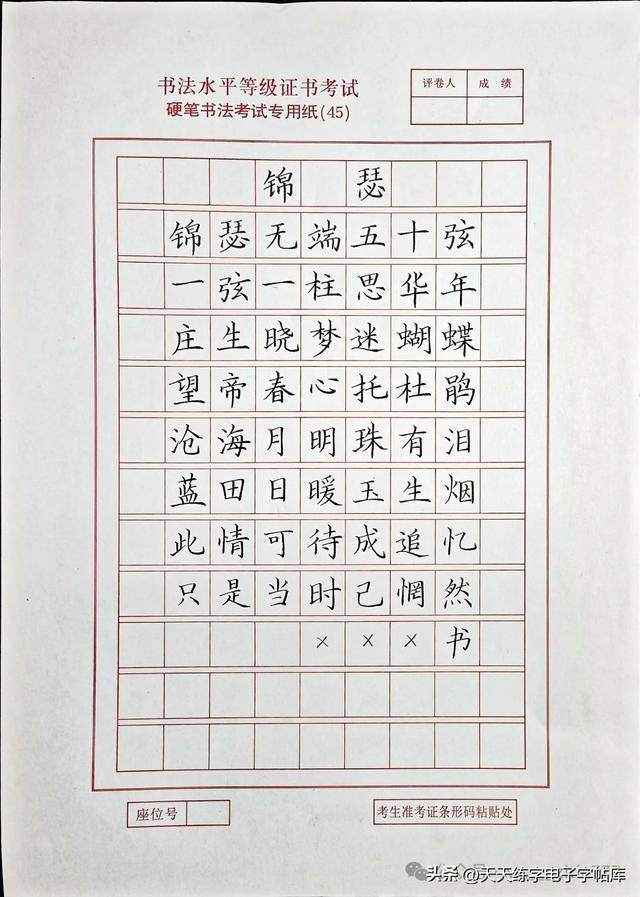 书法水平等级证书考试
硬笔书法考试专用纸(45)
评卷人 成绩
锦瑟
锦瑟无端五十弦
一弦一柱思华年
庄生晓梦迷蝴蝶
望帝春心托杜鹃
沧海月明珠有泪
蓝田日暖玉生烟
此情可待成追忆
只是当时已惘然
×××书
座位号
考生准考证条形码粘贴处
头条@天天练字电子字帖库